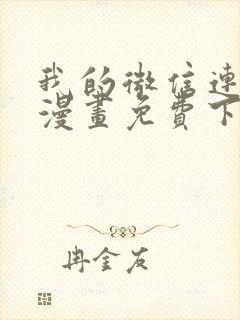 我的微信連
漫畫免費下
冉金友